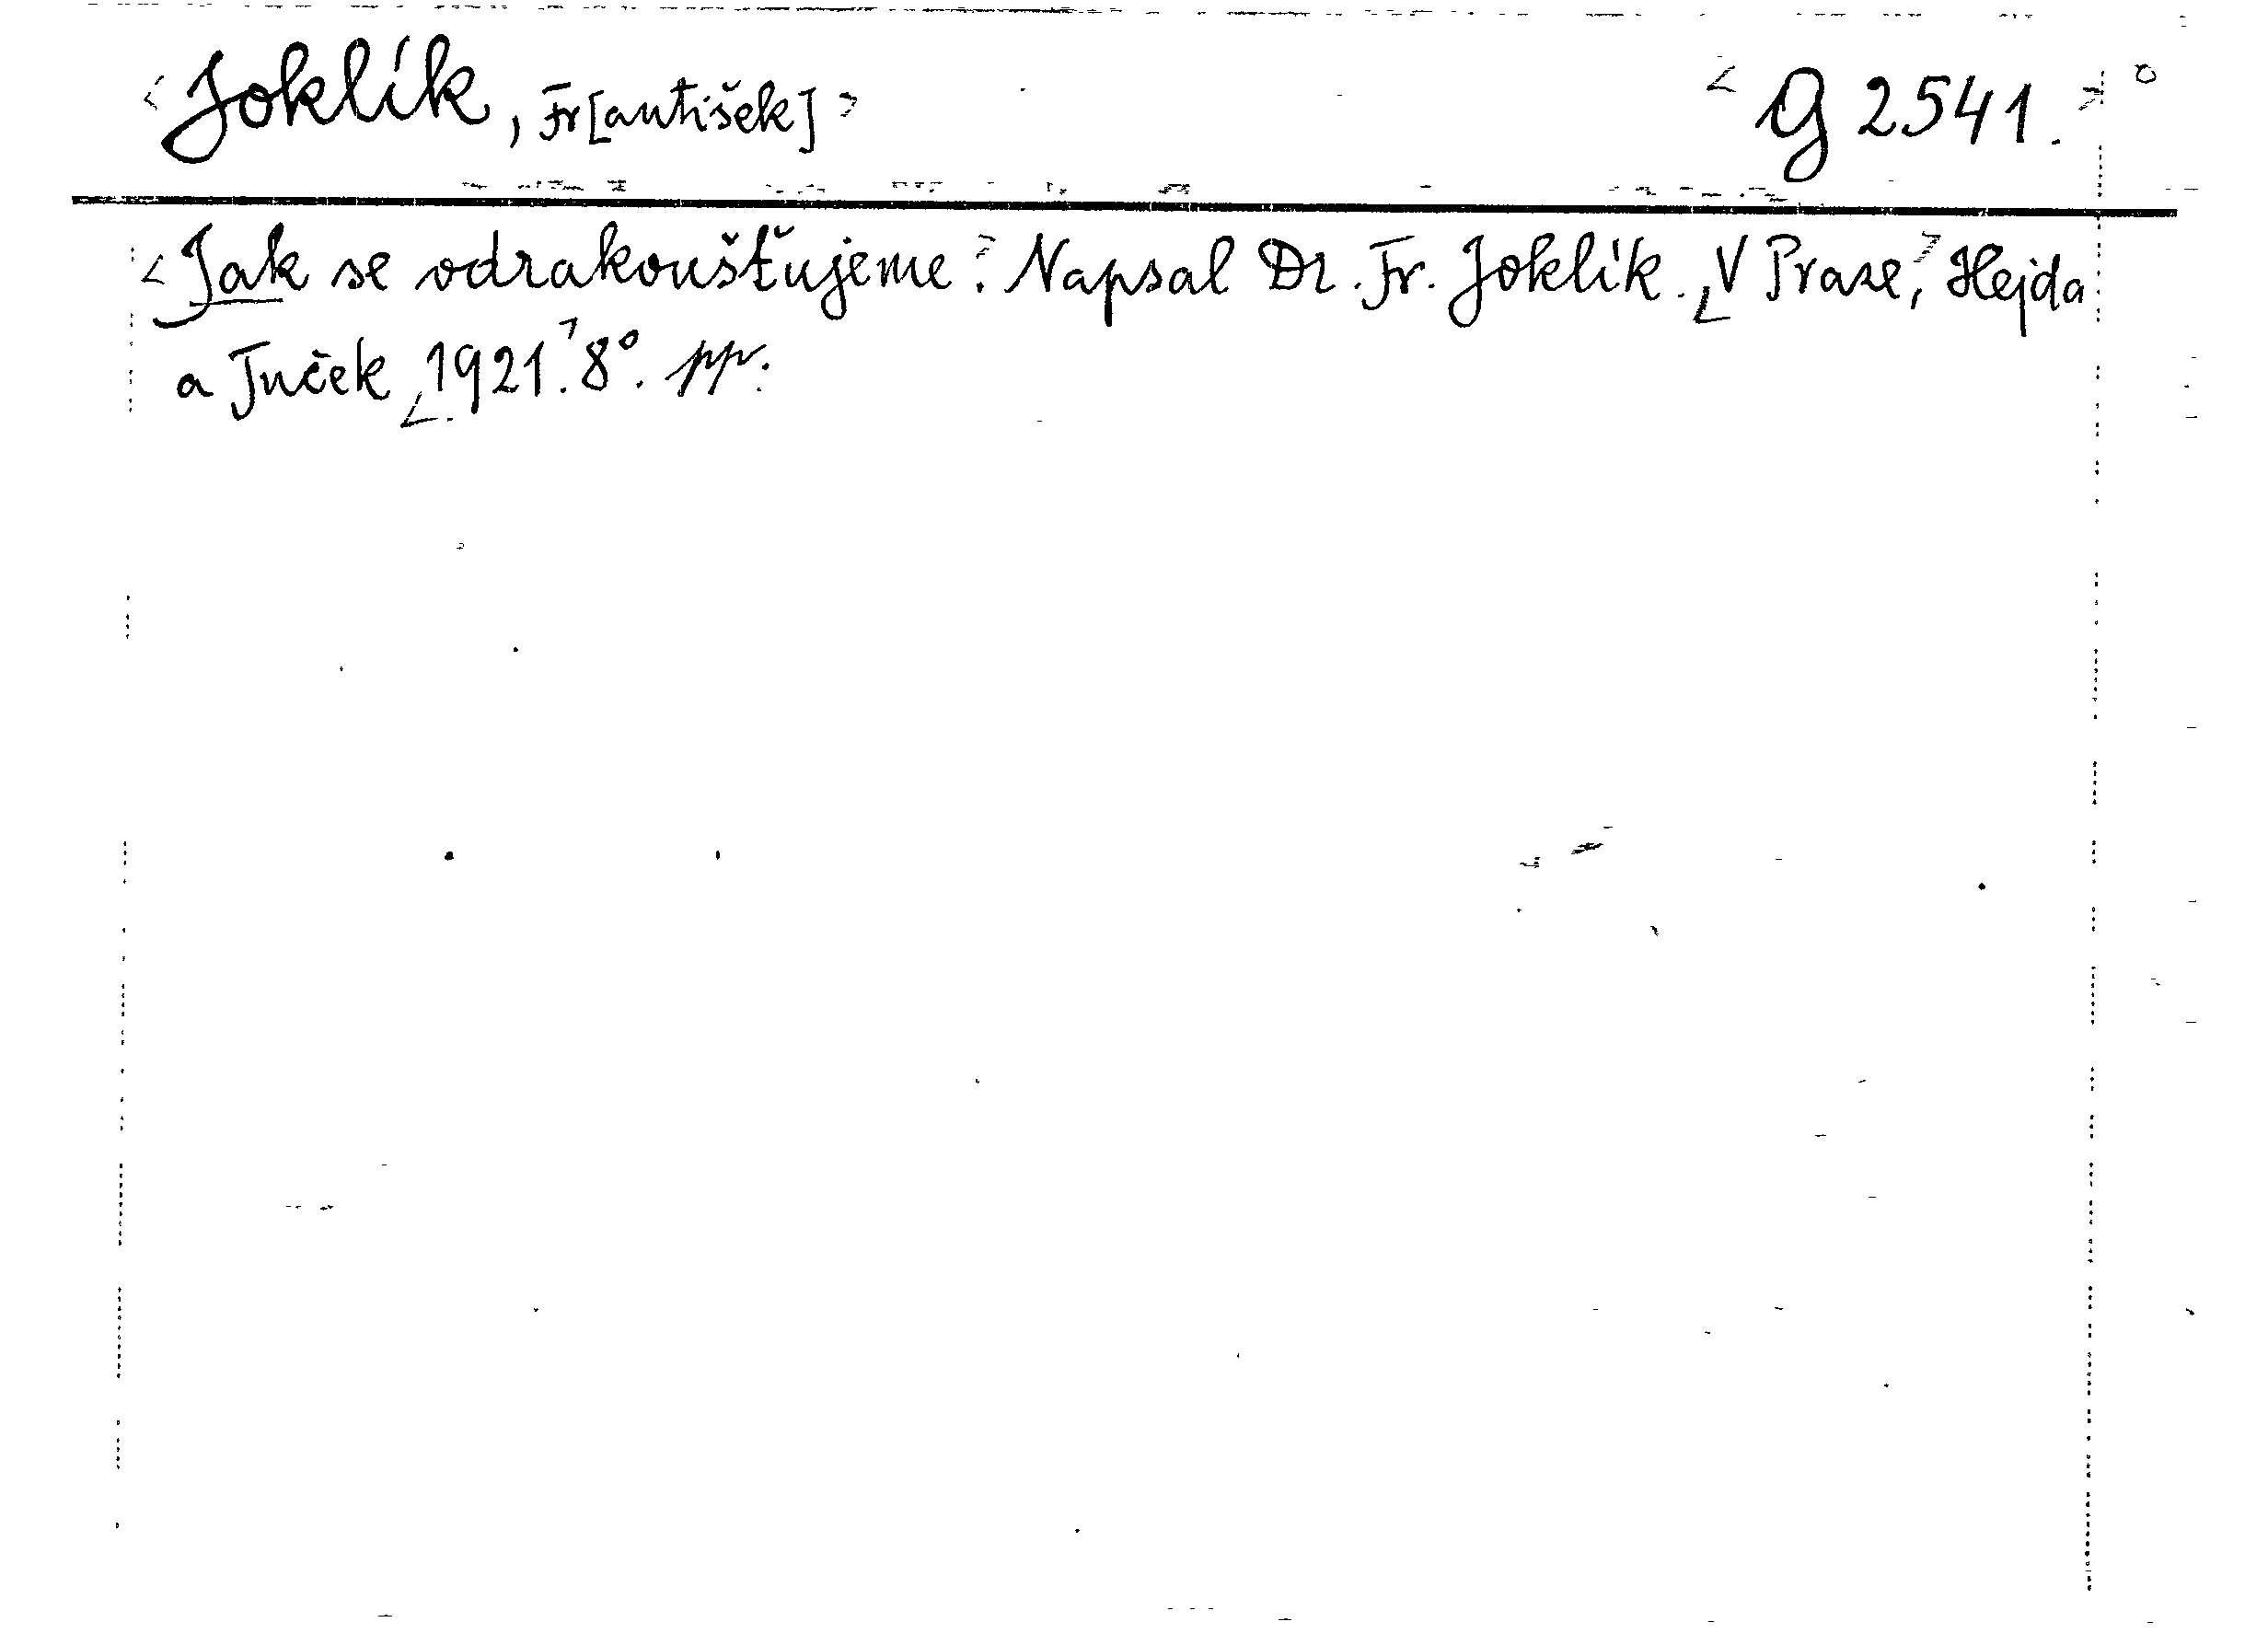 Joklík, Fr[antišek] G 2541.
Jak se odrakoušťujeme. Napsal Dr. Fr. Joklík. V Praze, Hejda
a Tuček 1921. 8°. pp.